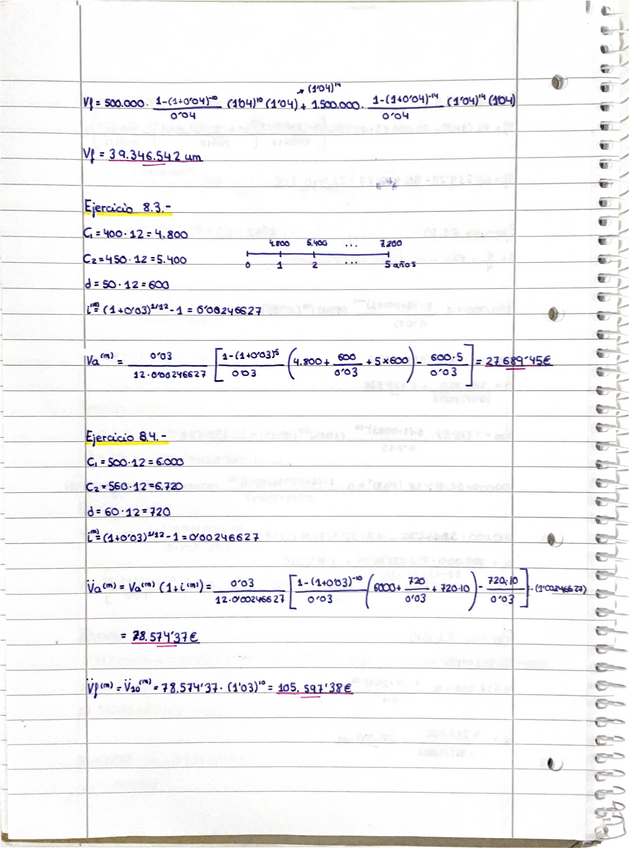 → (1'04)¹⁴
Vf = 500.000 · 1-(1+0'04)⁻¹⁰ / 0'04 (1'04)¹⁰ (1'04) + 1.500.000 · 1-(1+0'04)⁻¹⁴ / 0'04 (1'04)¹⁴ (1'04)
Vf = 39.346.542 um
Ejercicio 8.3.-
C₁ = 400 · 12 = 4.800
4.800 5.400 ... 7.200
C₂ = 450 · 12 = 5.400
0 1 2 ... 5 años
d = 50 · 12 = 600
i⁽ᵐ⁾ = (1+0'03)¹/¹² - 1 = 0'00246627
Va⁽ᵐ⁾ = 0'03 / 12·0'00246627 [ 1-(1+0'03)⁻⁵ / 0'03 ( 4.800 + 600 / 0'03 + 5×600 ) - 600·5 / 0'03 ] = 27.689'45€
Ejercicio 8.4.-
C₁ = 500 · 12 = 6.000
C₂ = 560 · 12 = 6.720
d = 60 · 12 = 720
i⁽ᵐ⁾ = (1+0'03)¹/¹² - 1 = 0'00246627
V̈a⁽ᵐ⁾ = Va⁽ᵐ⁾ (1+i⁽ᵐ⁾) = 0'03 / 12·0'00246627 [ 1-(1+0'03)⁻¹⁰ / 0'03 ( 6000 + 720 / 0'03 + 720·10 ) - 720·10 / 0'03 ] · (1'00246627)
= 78.574'37€
V̈f⁽ᵐ⁾ = V̈₁₀⁽ᵐ⁾ = 78.574'37 · (1'03)¹⁰ = 105.597'38€